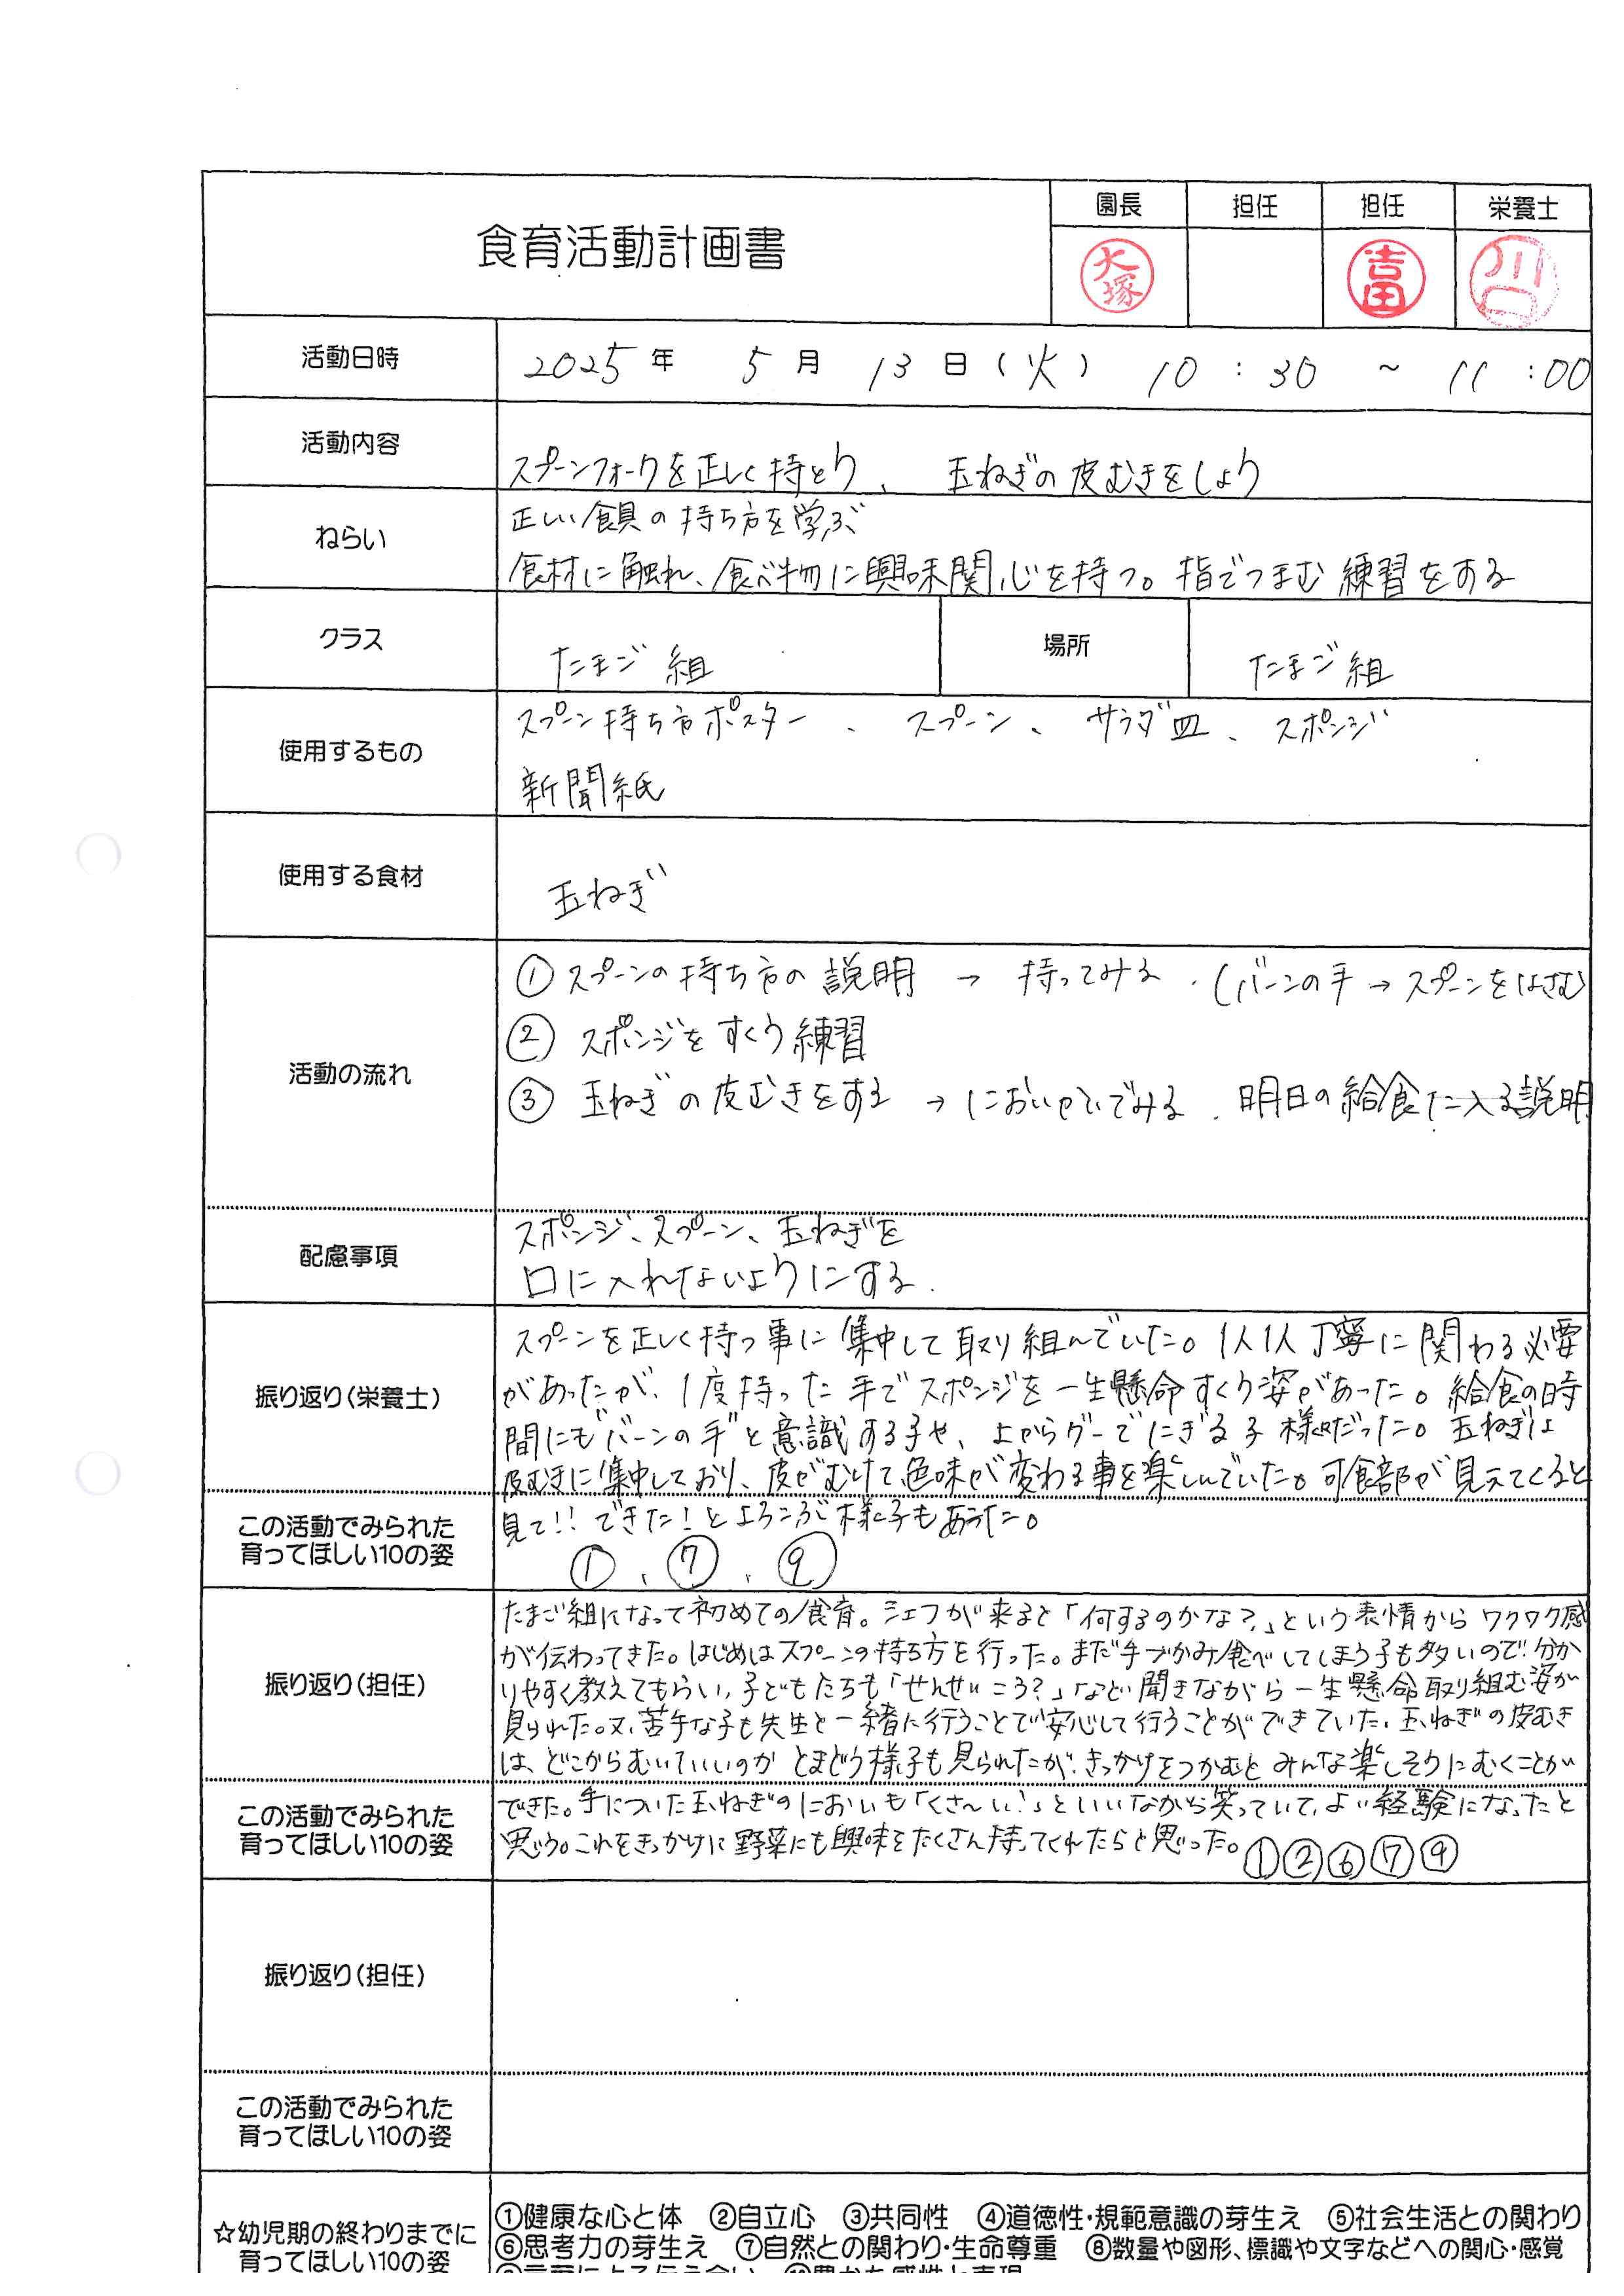 食育活動計画書
園長 担任 担任 栄養士
大塚 吉田 川口
活動日時 2025年 5月 13日(火) 10:30 ~ 11:00
活動内容 スプーンフォークを正しく持とう、 玉ねぎの皮むきをしよう
ねらい
正しい食具の持ち方を学ぶ
食材に触れ、食べ物に興味関心を持つ。指でつまむ練習をする
クラス たまご組 場所 たまご組
使用するもの
スプーン持ち方ポスター、スプーン、サラダ皿、スポンジ
新聞紙
使用する食材 玉ねぎ
活動の流れ
① スプーンの持ち方の説明 → 持ってみる.(バーンの手→スプーンをはさむ)
② スポンジをすくう練習
③ 玉ねぎの皮むきをする → においかいでみる. 明日の給食に入る説明
配慮事項
スポンジ、スプーン、玉ねぎを
口に入れないようにする.
振り返り(栄養士)
スプーンを正しく持つ事に集中して取り組んでいた。1人1人丁寧に関わる必要
があったが、1度持った手でスポンジを一生懸命すくう姿があった。給食の時
間にも"バーンの手"と意識する子や、上からグーでにぎる子様々だった。玉ねぎは
皮むきに集中しており、皮がむけて色味が変わる事を楽しんでいた。可食部が見えてくると
見て!!できた!とよろこぶ様子もあった。
この活動でみられた
育ってほしい10の姿
①、⑦、⑨
振り返り(担任)
たまご組になって初めての食育。シェフが来ると「何するのかな?」という表情からワクワク感
が伝わってきた。はじめはスプーンの持ち方を行った。まだ手づかみ食べしてしまう子も多いので分か
りやすく教えてもらい、子どもたちも「せんせいこう?」など聞きながら一生懸命取り組む姿が
見られた。又、苦手な子も先生と一緒に行うことで安心して行うことができていた。玉ねぎの皮むき
は、どこからむいていいのかとまどう様子も見られたが、きっかけをつかむとみんな楽しそうにむくことが
できた。手についた玉ねぎのにおいも「くさ〜い!」といいながら笑っていて、よい経験になったと
思う。これをきっかけに野菜にも興味をたくさん持ってくれたらと思った。①②⑥⑦⑨
この活動でみられた
育ってほしい10の姿
振り返り(担任)
この活動でみられた
育ってほしい10の姿
☆幼児期の終わりまでに
育ってほしい10の姿
①健康な心と体 ②自立心 ③共同性 ④道徳性・規範意識の芽生え ⑤社会生活との関わり
⑥思考力の芽生え ⑦自然との関わり・生命尊重 ⑧数量や図形、標識や文字などへの関心・感覚